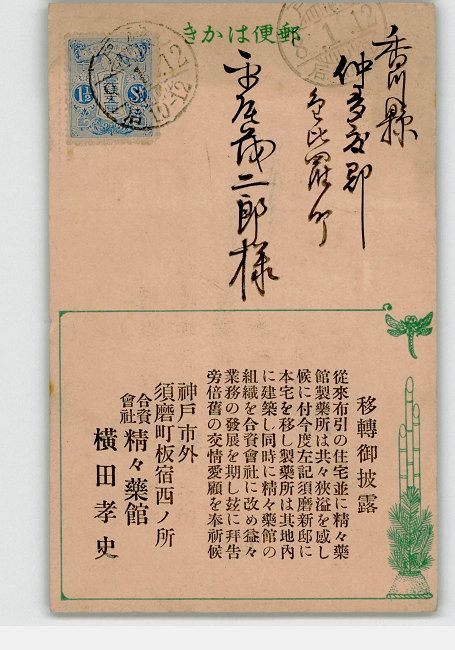 きかは便郵
香川縣
仲多度郡
金比羅町
二郎様
1½ Sn
移轉御披露
從來布引の住宅並に精々藥
館製藥所は共々狹溢を感し
候に付今度左記須磨新邸に
本宅を移し製藥所は其地內
に建築し同時に精々藥館の
組織を合資會社に改め益々
業務の發展を期し玆に拜告
旁倍舊の交情愛顧を奉祈候
神戶市外
須磨町板宿西ノ所
合資會社 精々藥館
橫田孝史